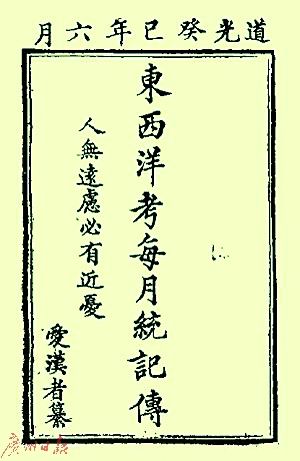 道光癸巳年六月
東西洋考每月統記傳
人無遠慮必有近憂
愛漢者纂
廣州日報